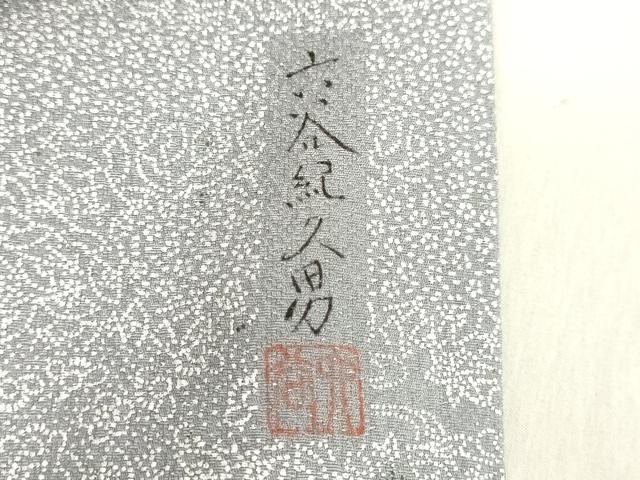 六谷紀久男